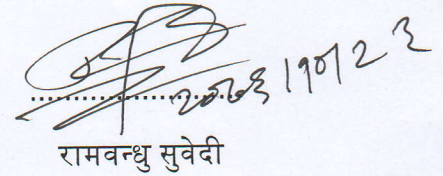 २०७६।१०।२३
रामवन्धु सुवेदी